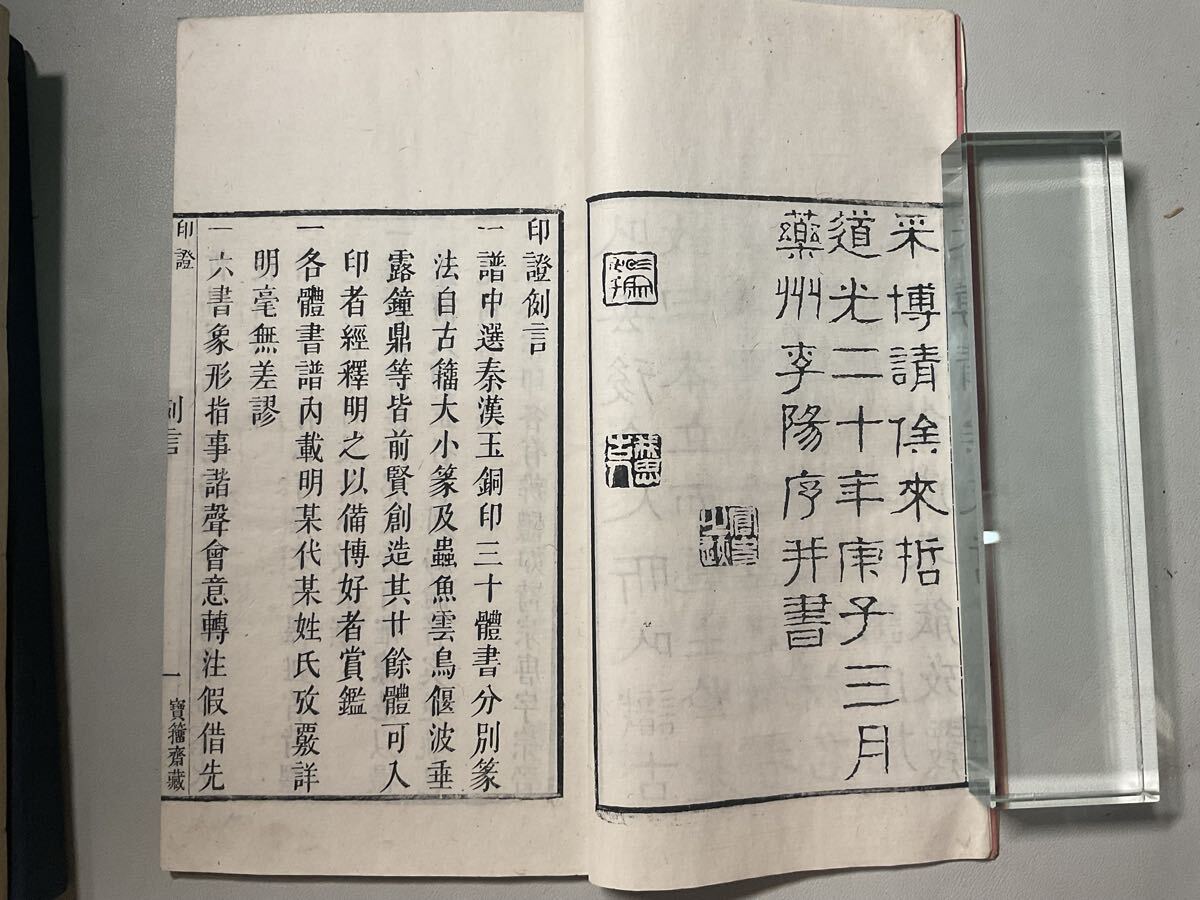 采博請俟來哲
道光二十年庚子三月
藥州李陽序并書
印證例言
一譜中選秦漢玉銅印三十體書分別篆
法自古籀大小篆及蟲魚雲鳥偃波垂
露鐘鼎等皆前賢創造其廿餘體可入
印者經釋明之以備博好者賞鑑
一各體書譜內載明某代某姓氏攷覈詳
明毫無差謬
一六書象形指事諧聲會意轉注假借先
印證
例言
一
寶籀齋藏